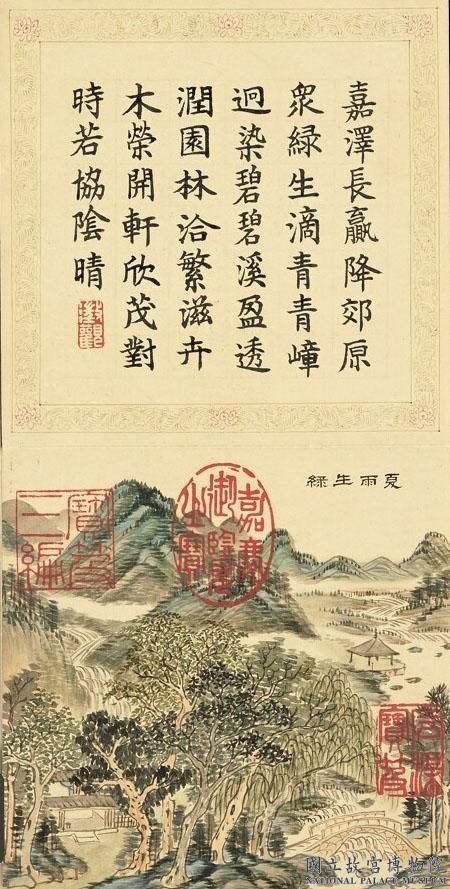 嘉澤長贏降郊原
衆緑生滴青青嶂
迥染碧碧溪盈透
潤園林洽繁滋卉
木榮開軒欣茂對
時若協陰晴
澂觀
夏雨生綠
嘉慶御覽之寶
寶笈三編
石渠寶笈
國立故宮博物院
NATIONAL PALACE MUSEUM